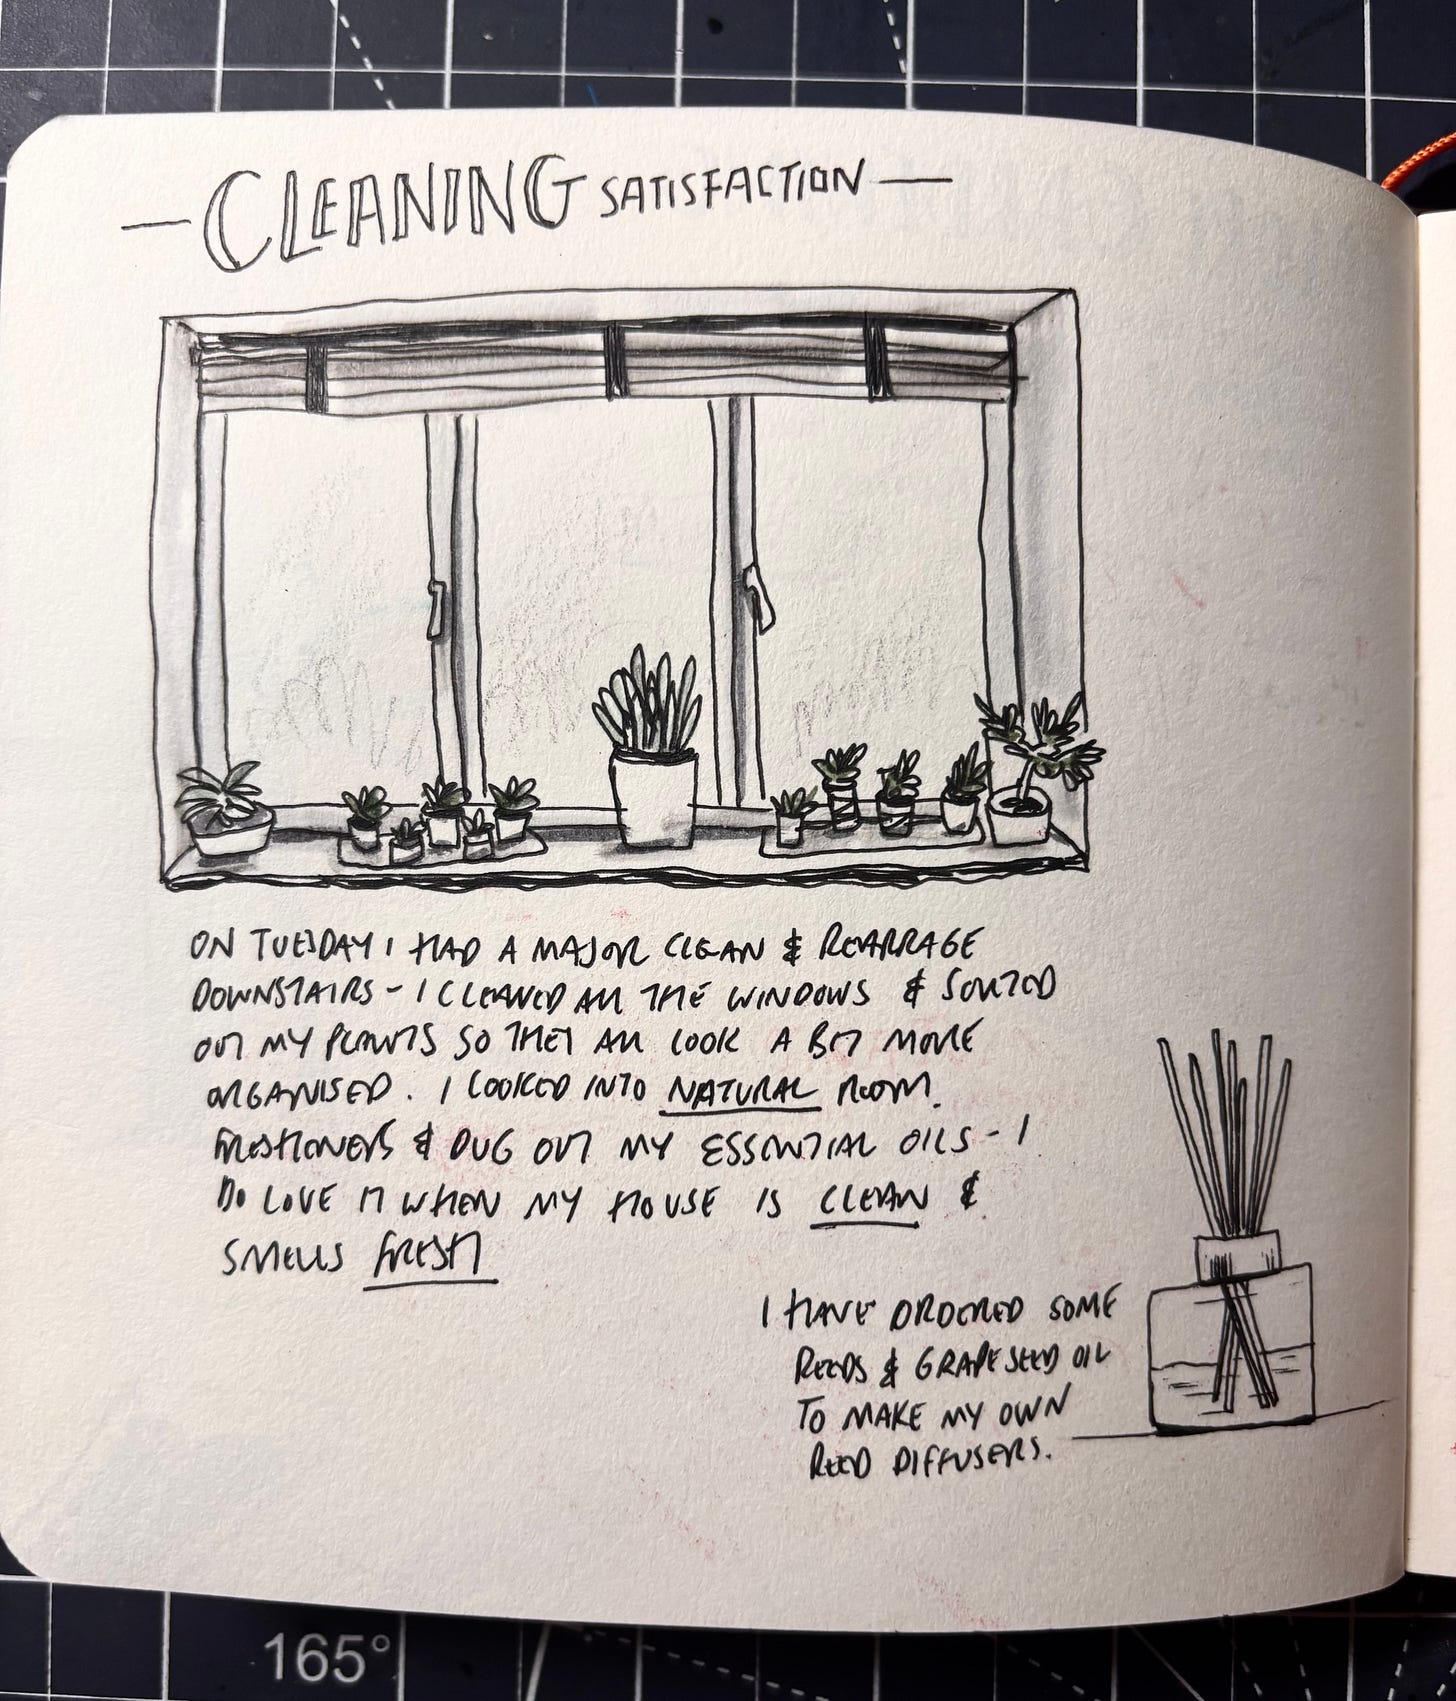 — CLEANING SATISFACTION —
ON TUESDAY I HAD A MAJOR CLEAN & REARRAGE
DOWNSTAIRS - I CLEANED ALL THE WINDOWS & SORTED
OUT MY PLANTS SO THEY ALL LOOK A BIT MORE
ORGANISED. I LOOKED INTO NATURAL ROOM
FRESHENERS & DUG OUT MY ESSENTIAL OILS - I
DO LOVE IT WHEN MY HOUSE IS CLEAN &
SMELLS FRESH
I HAVE ORDERED SOME
REEDS & GRAPESEED OIL
TO MAKE MY OWN
REED DIFFUSERS.
165°